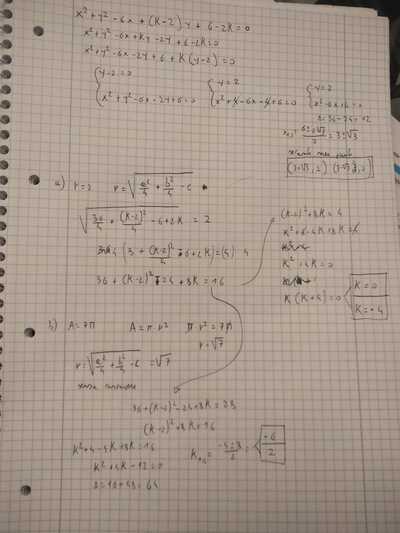 x² + y² - 6x + (K-2) y + 6 - 2K = 0
x² + y² - 6x + Ky - 2y + 6 - 2K = 0
x² + y² - 6x - 2y + 6 + K (y-2) = 0
{ y-2 = 0
x² + y² - 6x - 2y + 6 = 0
{ y = 2
x² + 4 - 6x - 4 + 6 = 0
{ y = 2
x² - 6x + 6 = 0
Δ = 36 - 24 = 12
= 3 ± √3
(3+√3, 2) (3-√3, 2)
a) r = 2 r = √(a²/4 + b²/4 - c)
√(36/4 + (K-2)²/4 - 6 + 2K) = 2
36 + (K-2)² - 24 + 8K = 16
(K-2)² + 8K = 4
K² + 4K = 0
K (K+4) = 0
K = 0
K = -4
b) A = 7π A = π r² π r² = 7π
r = √7
r = √(a²/4 + b²/4 - c) = √7
36 + (K-2)² - 24 + 8K = 28
(K-2)² + 8K = 16
K² + 4 - 4K + 8K = 16
K² + 4K - 12 = 0
Δ = 16 + 48 = 64
K₁,₂ = (-4 ± 8)/2 =
-6
2